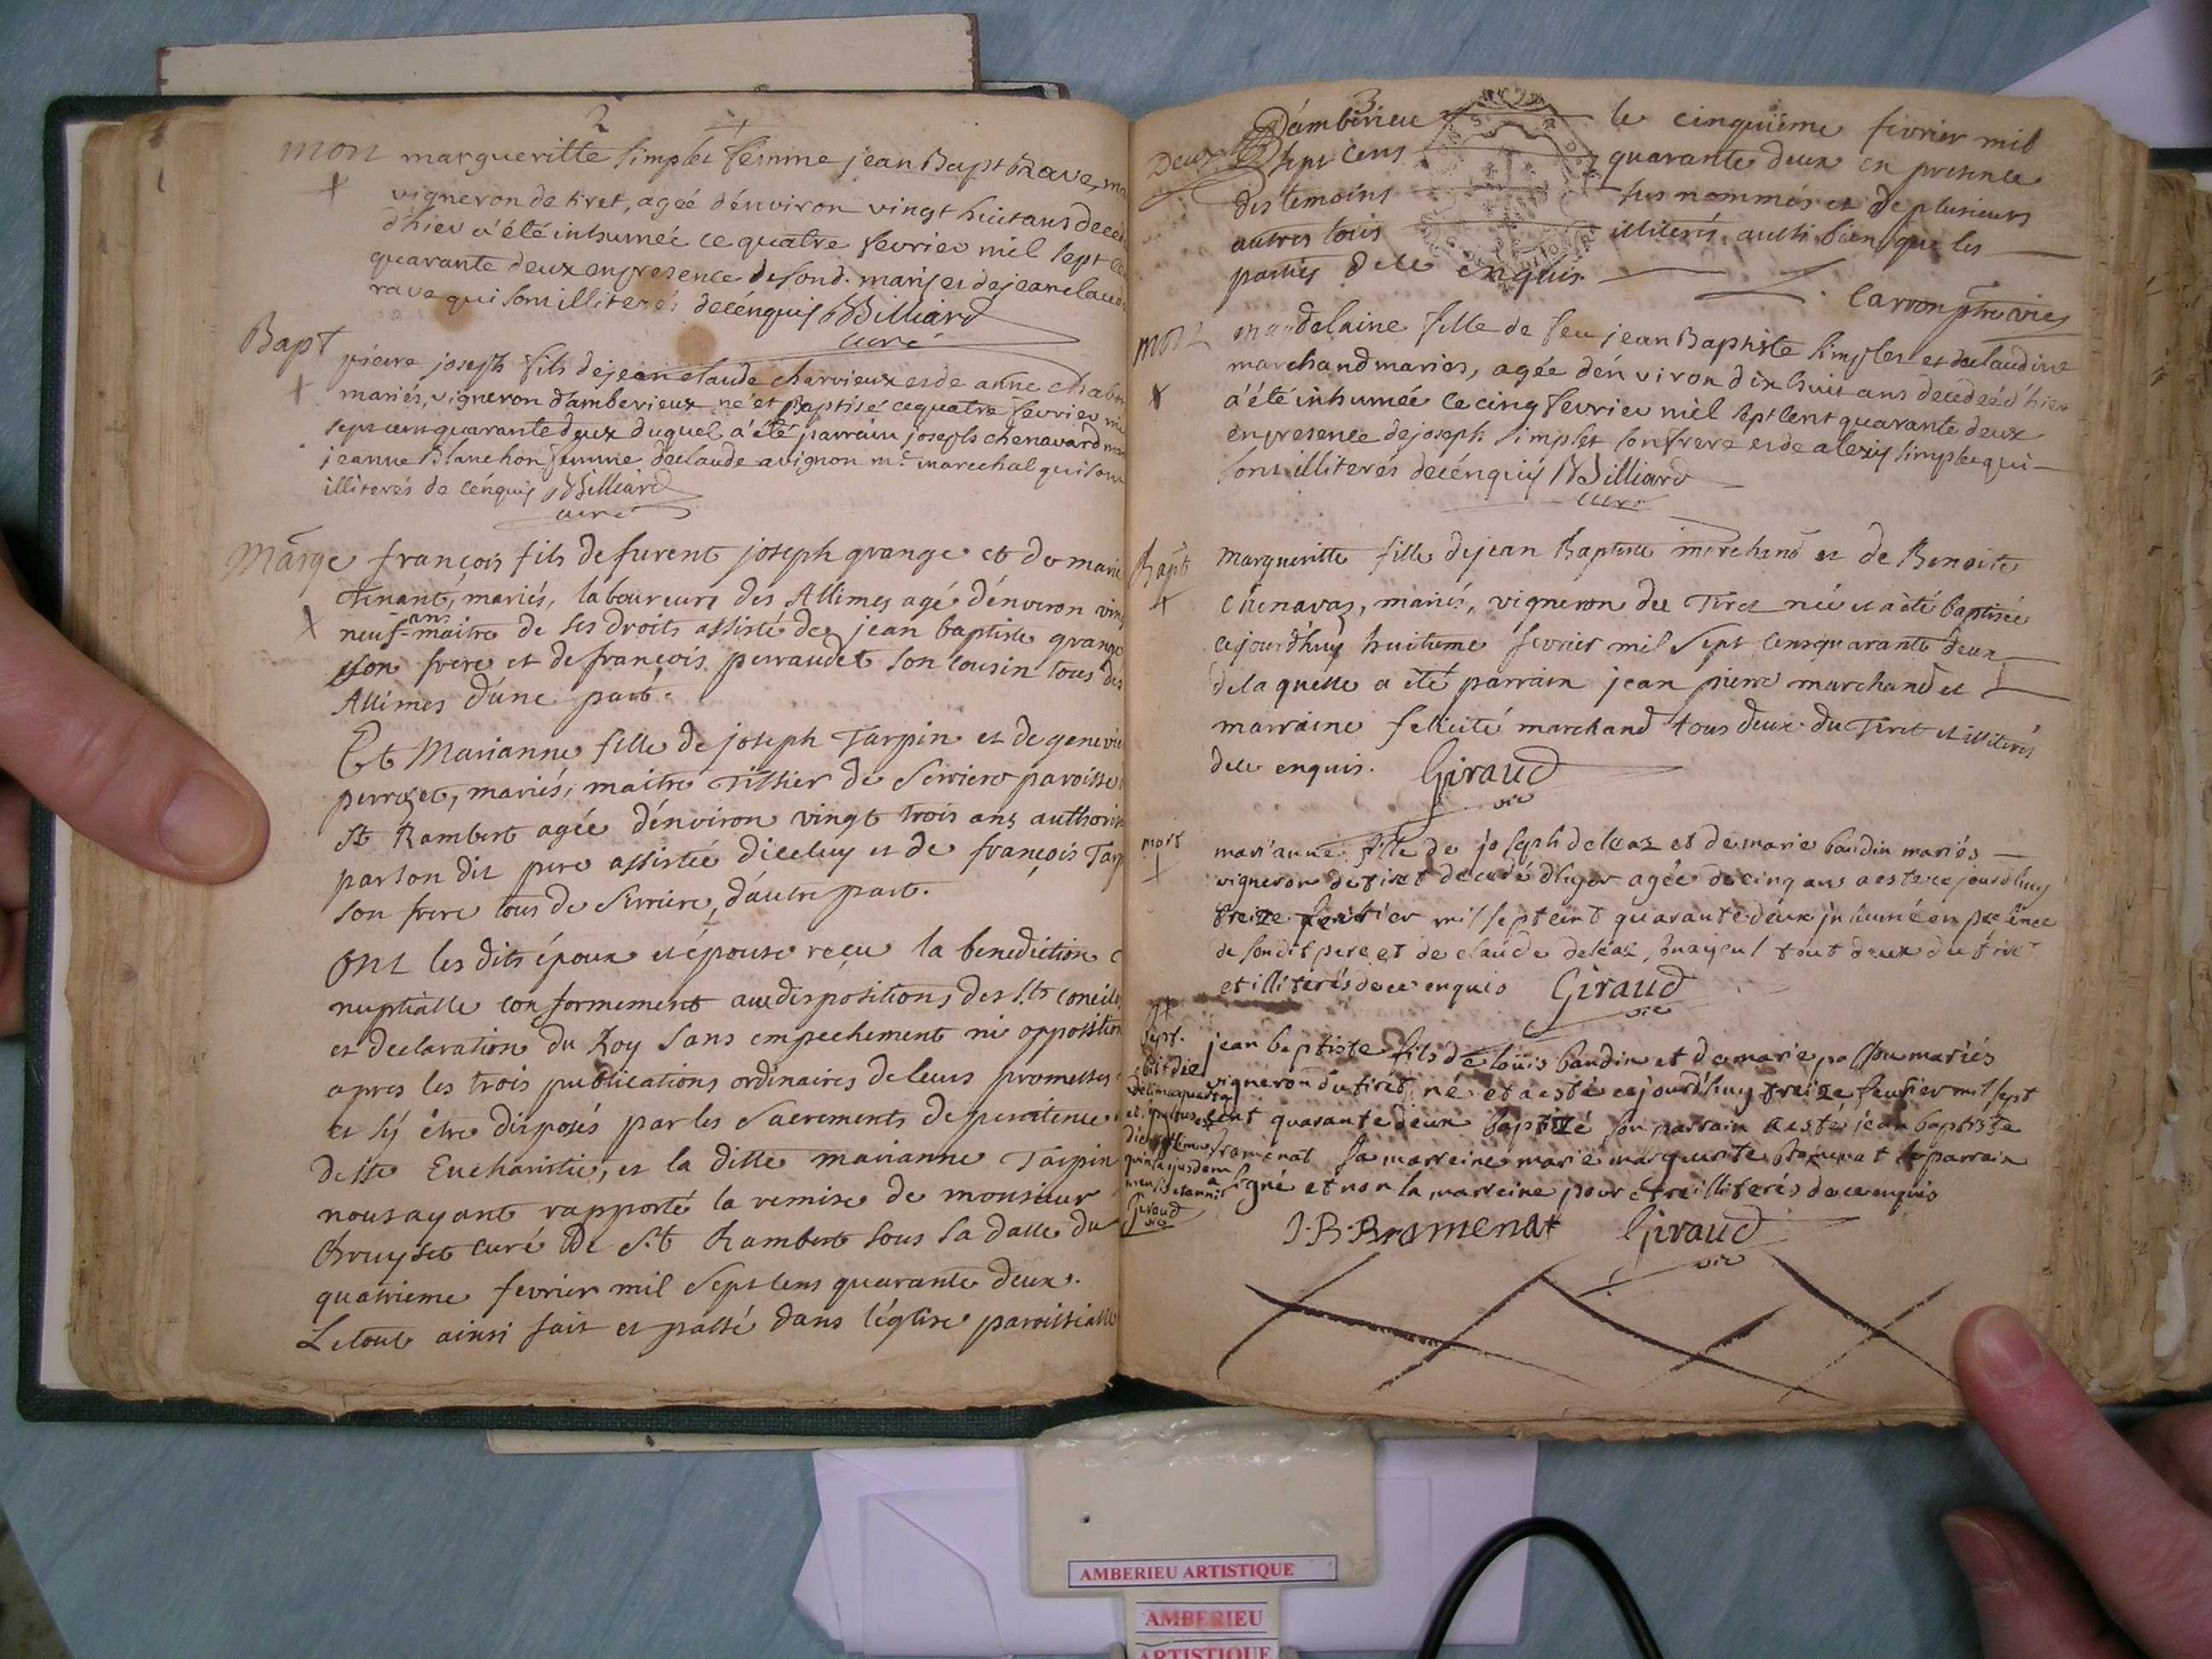 2
mort margueritte simplet femme jean Bapt Rave
vigneron de tiret, agée d'énviron vingt huit ans
d'hier a été inhumée ce quatre fevrier mil sept
quarante deux en presence de son d. mari et de jean claude
rave qui sont illiteres de cé enquis Billiard
curé
Bapt pierre joseph fils de jean claude charvieux et de anne
mariés, vigneron d'amberieux né et Baptisé ce quatre fevrier
sept cent quarante deux duquel a été parrain joseph chenavard
jeanne Blanchon femme de claude avignon me marechal qui sont
illiterés de cé enquis Billiard
curé
Marge françois fils de furent joseph grange et de marie
Tenant, mariés, laboureurs des Allimes agé d'énviron
neuf ans maitre de ses droits assisté de jean baptiste grange
son frere et de françois perraudet son cousin tous des
Allimes d'une part.
Et Marianne fille de joseph Tarpin et de
perrozet, mariés, maitre Tissier de Serriere paroisse
St Rambert agée d'énviron vingt trois ans
par son dit pere assistée d'iceluy et de françois
son frere tous de Serriere, d'autre part.
Ont les dits époux et épouse reçu la benediction
nuptialle conformement aux dispositions des Sts
et declaration du Roy sans empechement ni opposition
apres les trois publications ordinaires de leurs promesses
et s'y étre disposés par les Sacrements de penitence
de Ste Eucharistie, et la ditte marianne Tarpin
nous ayant rapporté la remise de monsieur
Bruyset curé de St Rambert sous la datte du
quatrieme fevrier mil sept cens quarante deux.
Le tout ainsi fait et passé dans l'église paroissialle
3
Deux
D'amberieu le cinquiéme fevrier mil
sept cens quarante deux en presence
des temoins sus nommés et de plusieurs
autres tous illiterés aussi bien que les
parties de ce enquis.
Carron ptre vic
mort magdelaine fille de feu jean Baptiste simplet et de claudine
marchand mariés, agée d'énviron dix huit ans decedée d'hier
a été inhumée ce cinq fevrier mil sept cent quarante deux
en presence de joseph simplet son frere et de alexis simplet qui
sont illiterés de cé enquis Billiard
curé
Bapt Margueritte fille de jean Baptiste marchand et de Benoite
chenavaz, mariés, vigneron du Tiret née et a été baptisée
cejourd'huy huitieme fevrier mil sept cens quarante deux
de laquelle a été parrain jean pierre marchand et
marraine felicité marchand tous deux du Tiret et illiterés
de ce enquis. Giraud
vic
mort mari'anne fille de joseph deleaz et de marie baudin mariés
vigneron de tiret decedé d'hyer agée de cinq ans a esté cejourdhuy
treize feuvrier mil sept cent quarante deux inhumé en presence
de son dit pere et de claude deleaz, tout deux du tiret
et illiterés de ce enquis Giraud
vic
jean baptiste fils de loüis baudin et de marie passou mariés
vigneron du tiret né et a esté cejourd'huy treize feuvrier mil sept
cent quarante deux baptizé son parrain a esté jean baptiste
framenat sa marreine marie marguerite bramenat le parrain
a signé et non la marreine pour etre illiterés de ce enquis
J. B. Bramenat Giraud
vic
sept.
Giraud
vic
AMBERIEU ARTISTIQUE
AMBERIEU
ARTISTIQUE